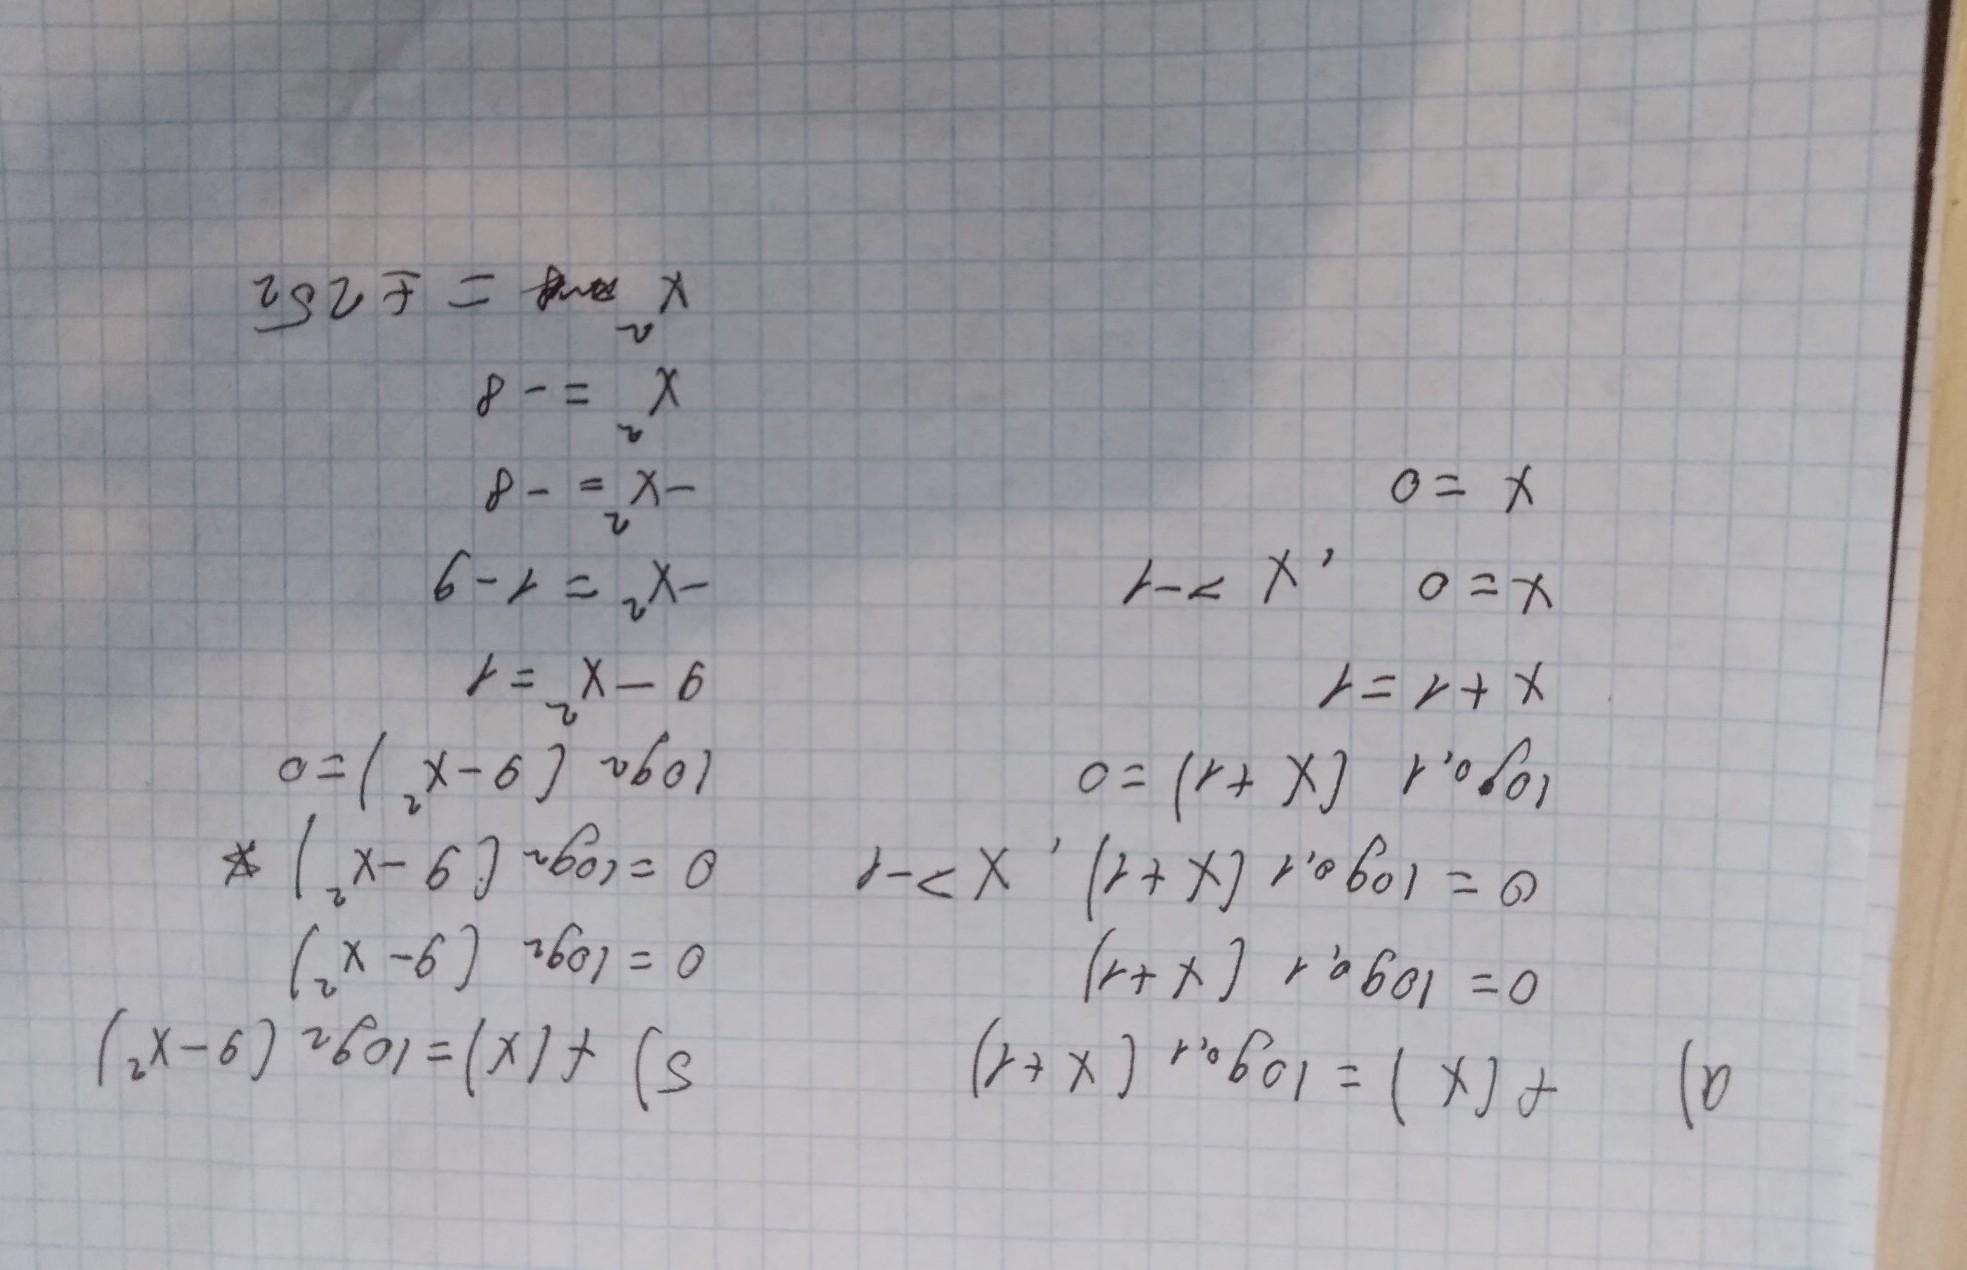 a) f(x) = log0,1 (x+1)
0 = log0,1 (x+1)
0 = log0,1 (x+1), x > -1
log0,1 (x+1) = 0
x + 1 = 1
x = 0, x > -1
x = 0
5) f(x) = log2 (9-x²)
0 = log2 (9-x²)
0 = log2 (9-x²)
log2 (9-x²) = 0
9 - x² = 1
-x² = 1 - 9
-x² = -8
x² = -8
x² = ± 2√2